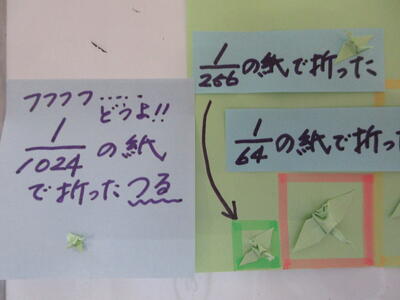 フフフフ.....
どうよ!!
1/1024の紙
で折ったつる
1/256の紙で折った
1/64の紙で折った